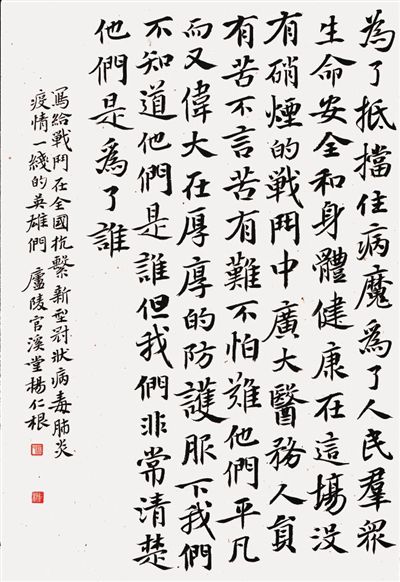 為了抵擋住病魔為了人民羣衆
生命安全和身體健康在這場没
有硝煙的戰鬥中廣大醫務人員
有苦不言苦有難不怕難他們平凡
而又偉大在厚厚的防護服下我們
不知道他們是誰但我們非常清楚
他們是爲了誰
寫給戰鬥在全國抗繫新型冠狀病毒肺炎
疫情一綫的英雄們 廬陵官溪堂楊仁根